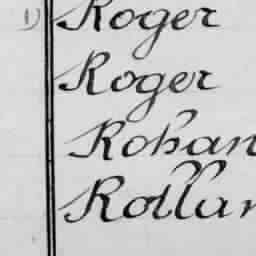 Roger
Roger
Rohan
Rollan